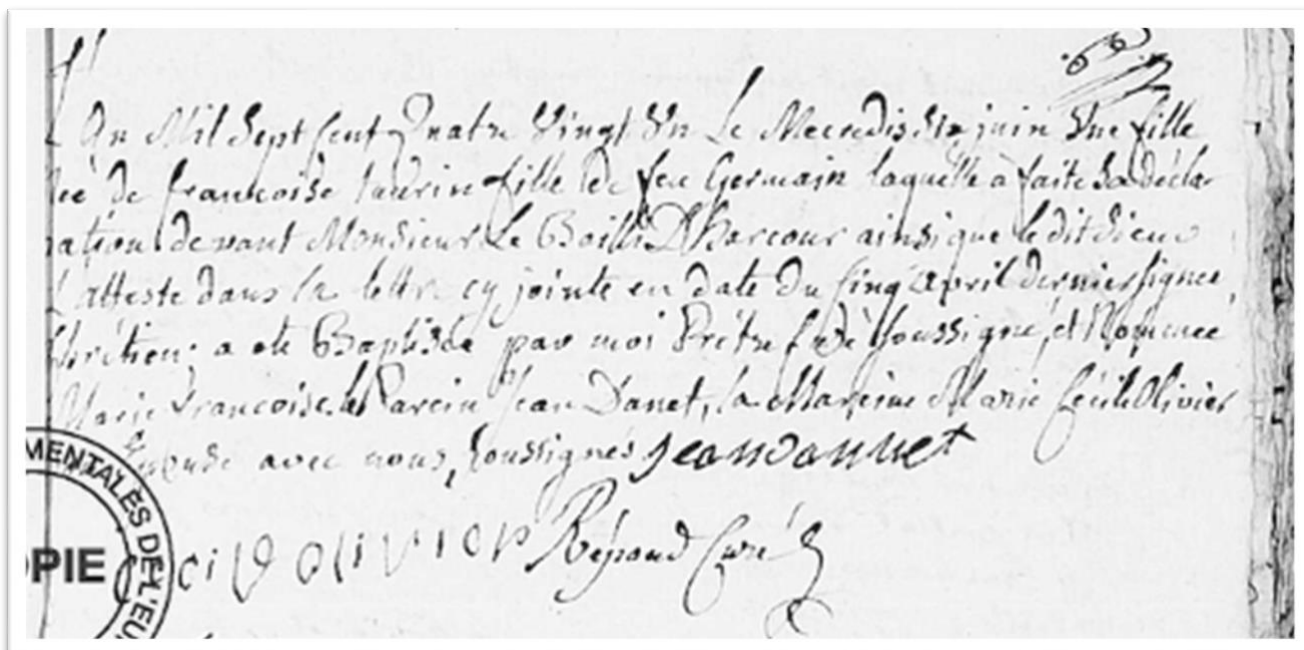 L'An Mil Sept Cent Quatre Vingt Un Le Mecredis Six juin Une fille
née de francoise fille de feu Germain laquelle à faite sa décla-
ration devant Monsieur Le Bailli D'Harcour ainsi que ledit sieur
l'atteste dans la lettre cy jointe en date du Cinq April dernier signée
Chrétien; a eté Baptisée par moi Prétre Curé soussigné, et Nommée
Marie Francoise. le Parein Jean Danet, la Mareine Marie Cécile Olivier
avec nous soussignés jean dannet
Cecile olivier Curé
MENTALES DE L'EU
OPIE